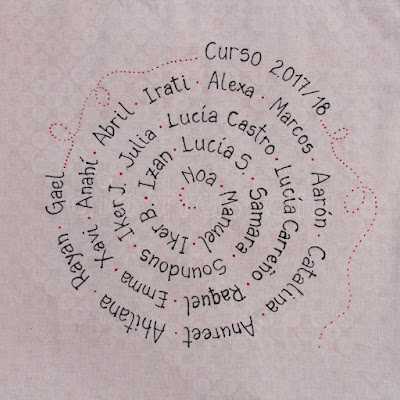 Curso 2017/18
Noa · Manuel · Iker B. · Izan · Lucía S. · Samara · Soundous · Iker J. · Julia · Lucía Castro · Lucía Carreño · Raquel · Emma · Xavi · Anahí · Abril · Irati · Alexa · Marcos · Aarón · Catalina · Anureet · Ahitana · Rayan · Gael